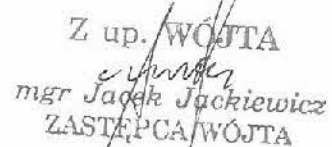 Z up. WÓJTA
mgr Jacek Jackiewicz
ZASTĘPCA WÓJTA